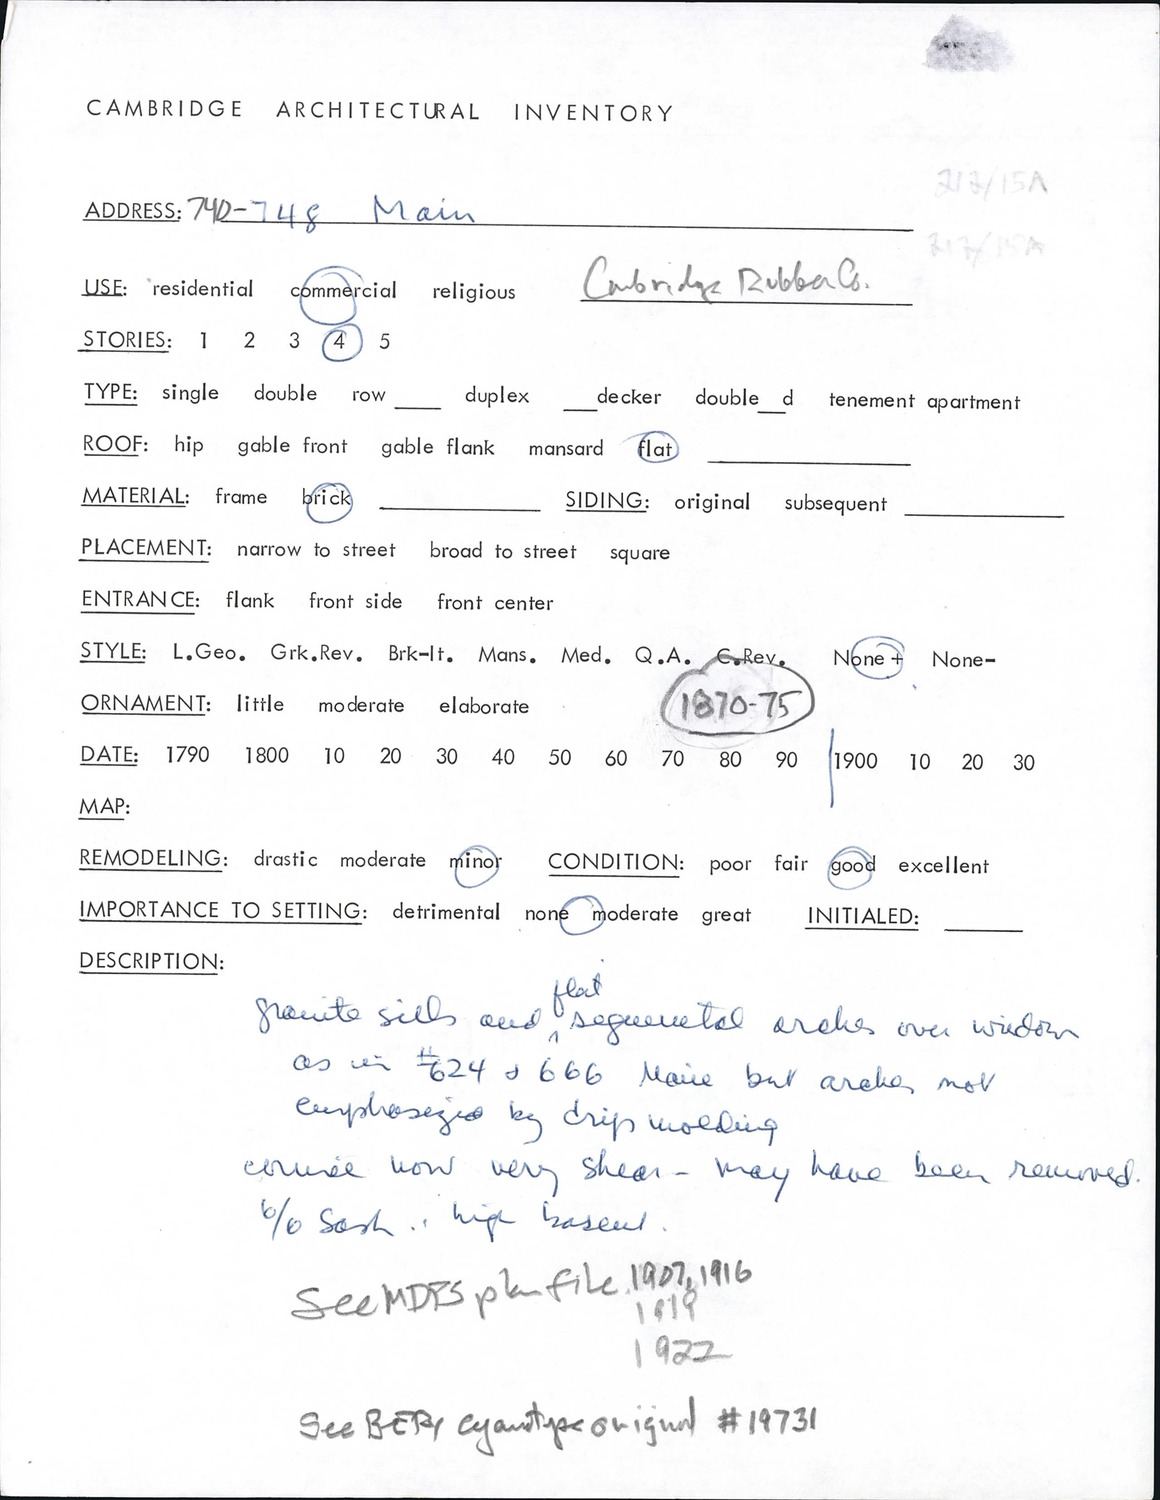 CAMBRIDGE ARCHITECTURAL INVENTORY
212/15A
ADDRESS: 740-748 Main
212/15A
USE: residential commercial religious Cambridge Rubber Co.
STORIES: 1 2 3 4 5
TYPE: single double row ____ duplex ___decker double__d tenement apartment
ROOF: hip gable front gable flank mansard flat
MATERIAL: frame brick SIDING: original subsequent
PLACEMENT: narrow to street broad to street square
ENTRANCE: flank front side front center
STYLE: L.Geo. Grk.Rev. Brk-It. Mans. Med. Q.A. C.Rev. None + None-
ORNAMENT: little moderate elaborate 1870-75
DATE: 1790 1800 10 20 30 40 50 60 70 80 90 1900 10 20 30
MAP:
REMODELING: drastic moderate minor CONDITION: poor fair good excellent
IMPORTANCE TO SETTING: detrimental none moderate great INITIALED:
DESCRIPTION:
flat
granite sills and segmental arches over window
as in #624 & 666 Main but arches not
emphasized by drip molding
cornice now very shear - may have been removed.
6/6 Sash .. high
See plan file 1907, 1916
1919
1922
See BERy cyanotype original #19731